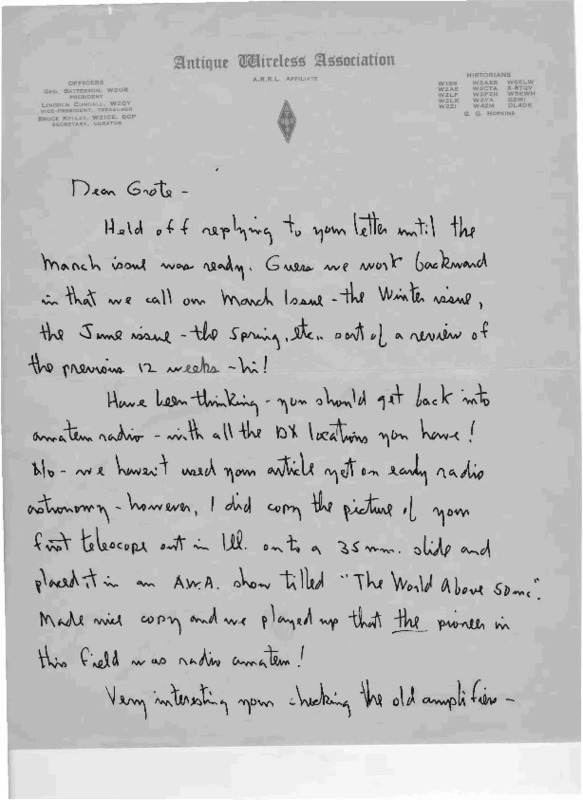 Antique Wireless Association
A.R.R.L. AFFILIATE
OFFICERS
GEO. BATTERSON, W2GB
PRESIDENT
LINCOLN CUNDALL, W2QY
VICE-PRESIDENT, TREASURER
BRUCE KELLEY, W2ICE, QCP
SECRETARY, CURATOR
HISTORIANS
G. G. HOPKINS
Dear Grote -
Held off replying to your letter until the
March issue was ready. Guess we work backward
in that we call our March Issue - the Winter issue,
the June issue - the Spring, etc.. sort of a review of
the previous 12 weeks - hi!
Have been thinking - you should get back into
amateur radio - with all the DX locations you have!
No - we haven't used your article yet on early radio
astronomy - however, I did copy the picture of your
first telescope out in Ill. onto a 35 mm. slide and
placed it in an A.W.A. show titled "The World Above 50mc".
Made nice copy and we played up that the pioneer in
this field was radio amateur!
Very interesting your checking the old amplifiers -